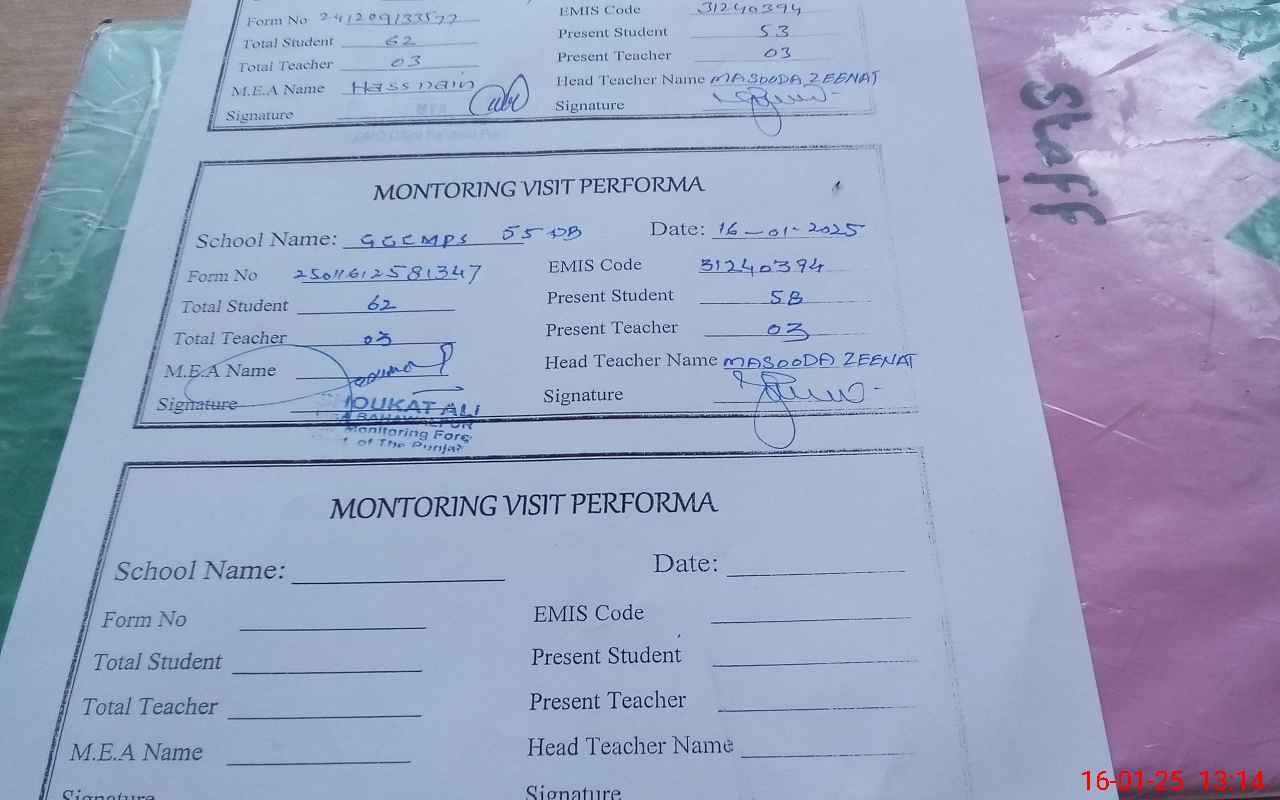 Form No 241209133577 EMIS Code 31240394
Total Student 62 Present Student 53
Total Teacher 03 Present Teacher 03
M.E.A Name Hassnain Head Teacher Name MASOODA ZEENAT
Signature Signature
MONTORING VISIT PERFORMA
School Name: GGCMPS 55 DB Date: 16-01-2025
Form No 25011612581347 EMIS Code 31240394
Total Student 62 Present Student 58
Total Teacher 03 Present Teacher 03
M.E.A Name Head Teacher Name MASOODA ZEENAT
Signature Signature
OUKAT ALI
Monitoring Forc
of The Punja
MONTORING VISIT PERFORMA
School Name: Date:
Form No EMIS Code
Total Student Present Student
Total Teacher Present Teacher
M.E.A Name Head Teacher Name
Signature Signature
Staff
16-01-25 13:14